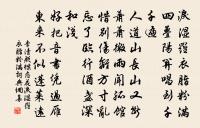 淚濕羅衣脂粉滿
四疊陽關唱到千
千遍
人道山長山又斷
蕭蕭微雨聞孤館
惜別傷離方寸亂
忘了臨行酒盞深
和淺
好把音書憑過雁
東萊不似蓬萊遠
李清照蝶戀花淚濕羅
衣脂粉滿詞典網集